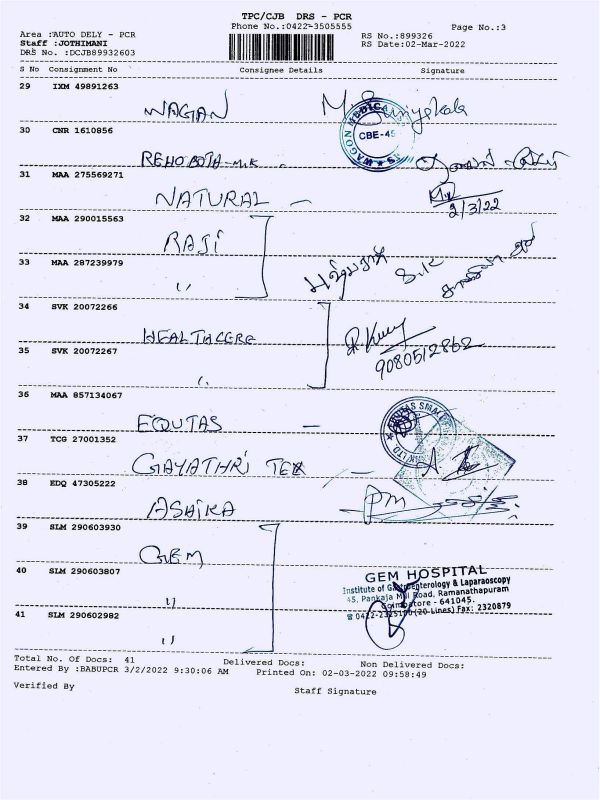 TPC/CJB DRS - PCR
Phone No.:0422-3505555
Page No.:3
Area :AUTO DELY - PCR
RS No.:899326
Staff :JOTHIMANI
RS Date:02-Mar-2022
DRS No. :DCJB89932603
S No Consignment No Consignee Details Signature
29 IXM 49891263
WAGAN
WAGON MEDICALS
CBE-45
30 CNR 1610856
REHOBOTA-MK
31 MAA 275569271
NATURAL -
2/3/22
32 MAA 290015563
RAJI
33 MAA 287239979
"
34 SVK 20072266
HEALTHCERE
R.
9080512862
35 SVK 20072267
"
36 MAA 857134067
EQUTAS -
37 TCG 27001352
GAYATHRI TEX -
38 EDQ 47305222
ASHIKA
PM
39 SLM 290603930
GEM
40 SLM 290603807
"
GEM HOSPITAL
Institute of Gastroenterology & Laparaoscopy
45, Pankaja Mill Road, Ramanathapuram
Coimbatore - 641045.
☎ 0422-2325100 (20 Lines) Fax: 2320879
41 SLM 290602982
"
Total No. Of Docs: 41 Delivered Docs: Non Delivered Docs:
Entered By :BABUPCR 3/2/2022 9:30:06 AM Printed On: 02-03-2022 09:58:49
Verified By
Staff Signature